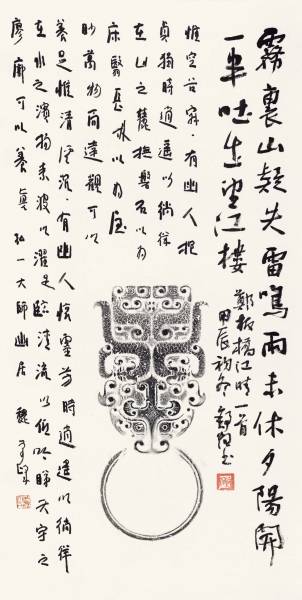 霧裏山疑失雷鳴雨未休夕陽開
一半吐出望江樓
鄭板橋江晴一首
甲辰初冬
惟空谷寂々有幽人抱
貞獨時逍遙以徜徉
在山之麓撫磐石以為
床翳長林以為屋
眇萬物而達觀可以
養足惟清溪沉々有幽人懷靈芳時逍遙以徜徉
在水之濱揚素波以濯足臨清流以低吟睇天宇之
廖廓可以養真弘一大師幽居